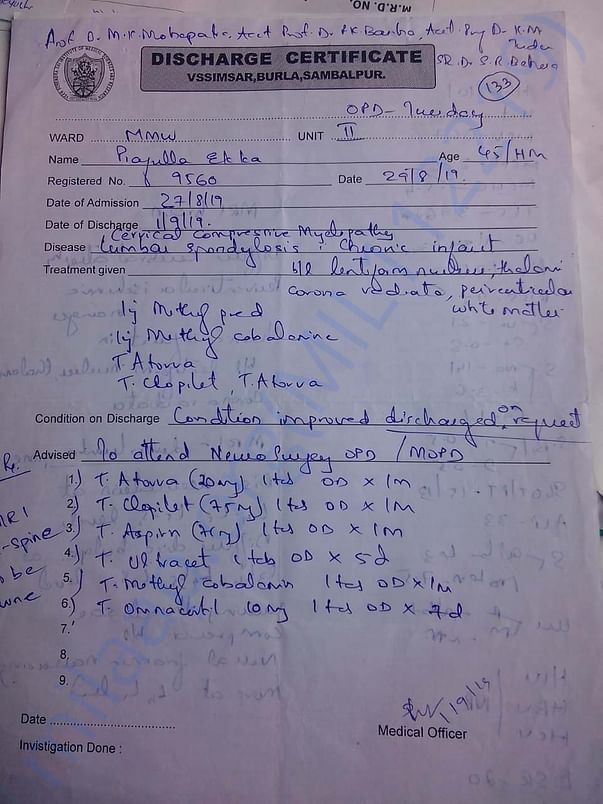 M.R.D. NO.
Prof. D. M. K. Mohapatra, Asst Prof. Dr. P.K. Bariha, Asst. Prof Dr. K.M
Tudu
SR. Dr. S.R Behera
DISCHARGE CERTIFICATE
VSSIMSAR,BURLA,SAMBALPUR.
133
OPD - Tuesday
WARD MMW UNIT II
Name Prafulla Ekka Age 45/HM
Registered No. 9560 Date 29/8/19.
Date of Admission 27/8/19
Date of Discharge 1/9/19.
Cervical Compressive Myelopathy
Disease Lumbar spondylosis : Chronic infarct
Treatment given b/l lentiform nucleus, thalami
corona radiata, periventricular
white matter
Inj Methyl pred
Inj Methyl cobalamine
T. Atorva
T. Clopilet, T. Atorva
Condition on Discharge Condition improved discharged on request
Advised To attend Neuro Surgery OPD / MOPD
Rx.
1.) T. Atorva (20mg) 1 tab OD x 1M
2.) T. Clopilet (75mg) 1 tab OD x 1M
MRI
3.) T. Aspirin (75mg) 1 tab OD x 1M
-spine
4.) T. Ultracet 1 tab OD x 5d
o be
5.) T. Methyl cobalamin 1 tab OD x 1M
6.) T. Omnacortil 10mg 1 tab OD x 7d
7.
8.
9.
1/9/19
Date
Medical Officer
Invistigation Done :